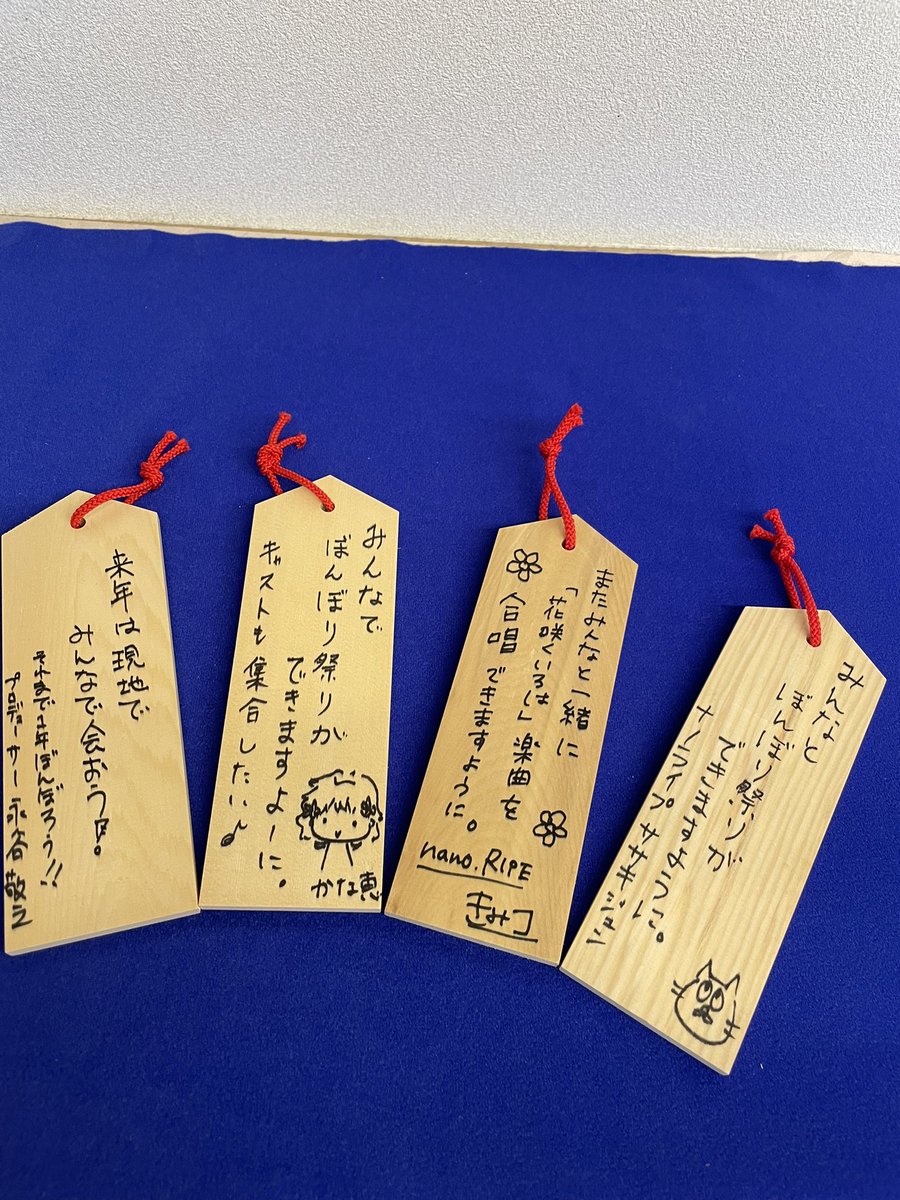 来年は現地で
みんなで会おうぜ。
それまで1年ぼんぼろう!!
プロデューサー 永谷敬之
みんなで
ぼんぼり祭りが
できますよーに。
キャストも集合したい♪
かな恵
またみんなと一緒に
「花咲くいろは」楽曲を
合唱できますように。
nano.RIPE
きみコ
みんなと
ぼんぼり祭りが
できますように。
ナノライプ ササキジュン